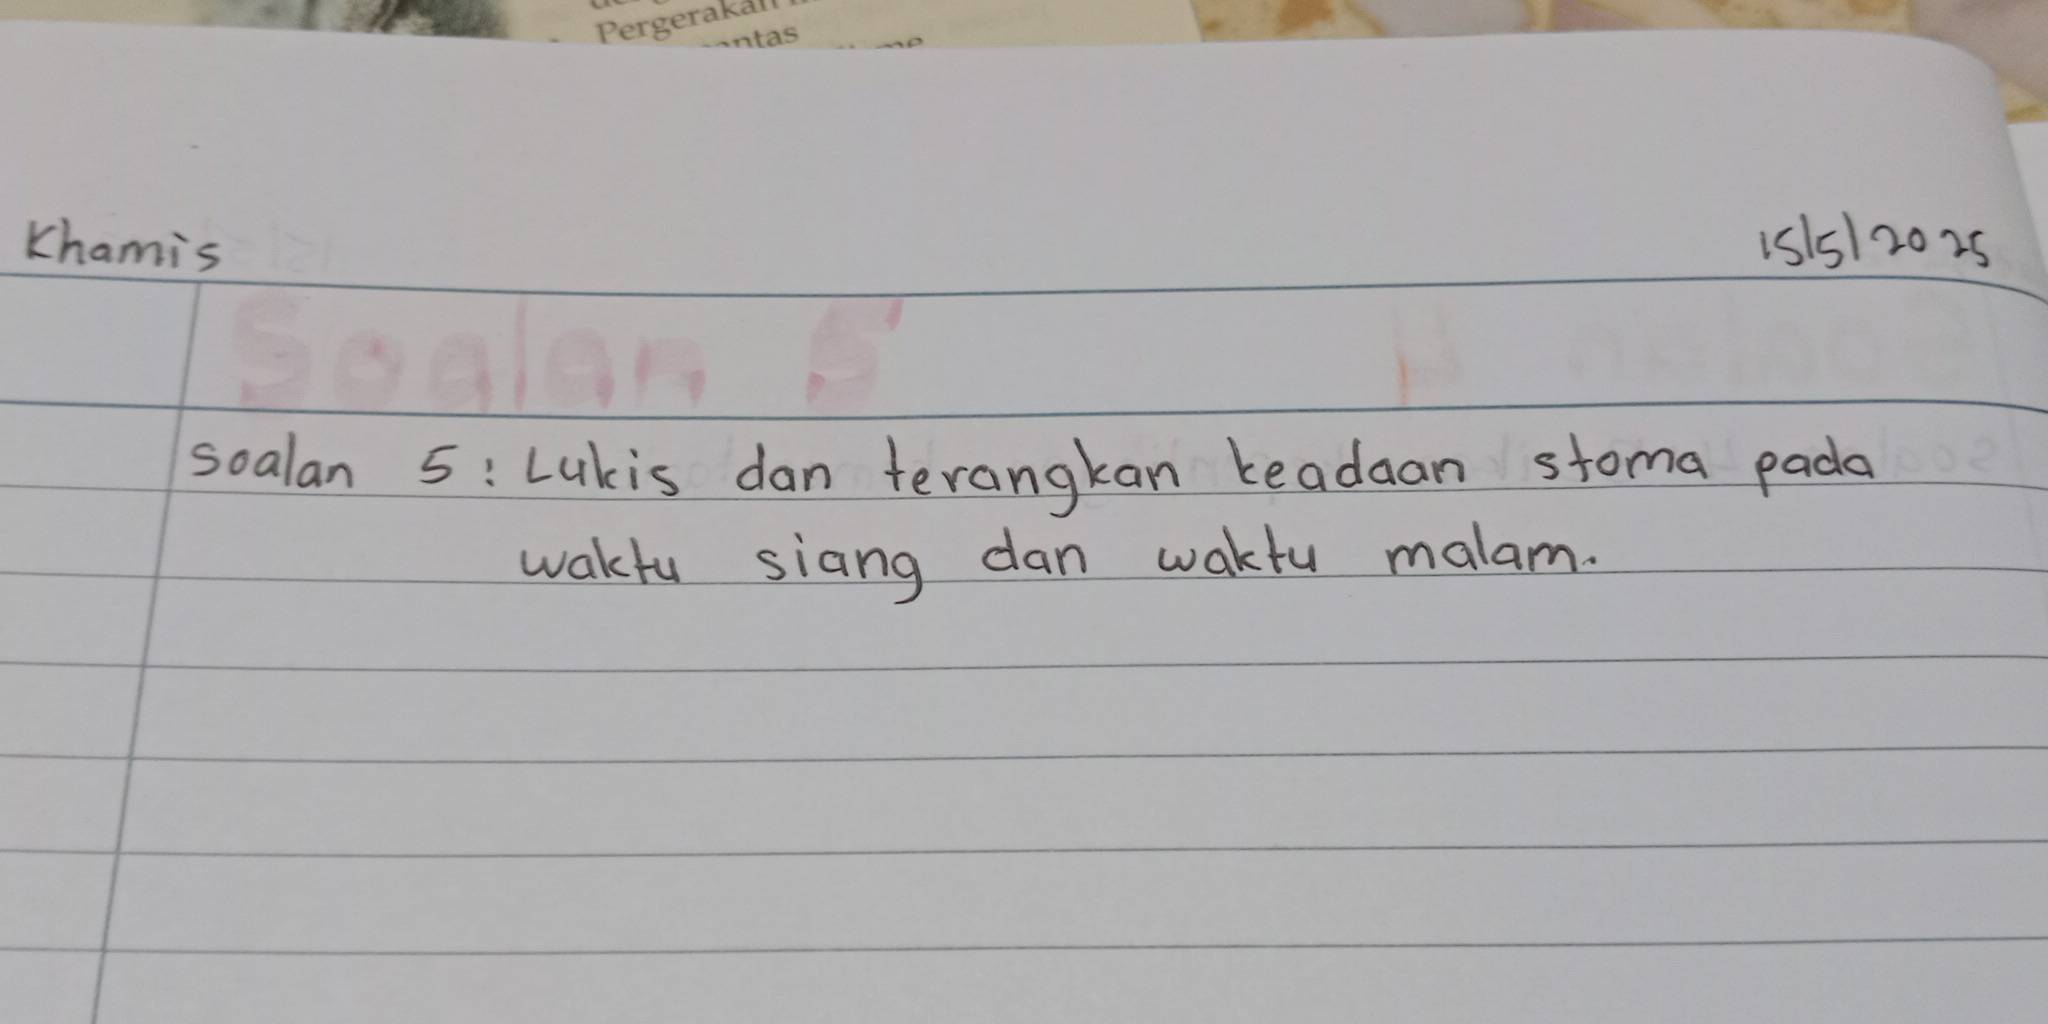 Pergerakan
ntas
Khamis
15/5/2025
Soalan 5
soalan 5: Lukis dan terangkan keadaan stoma pada
waktu siang dan waktu malam.